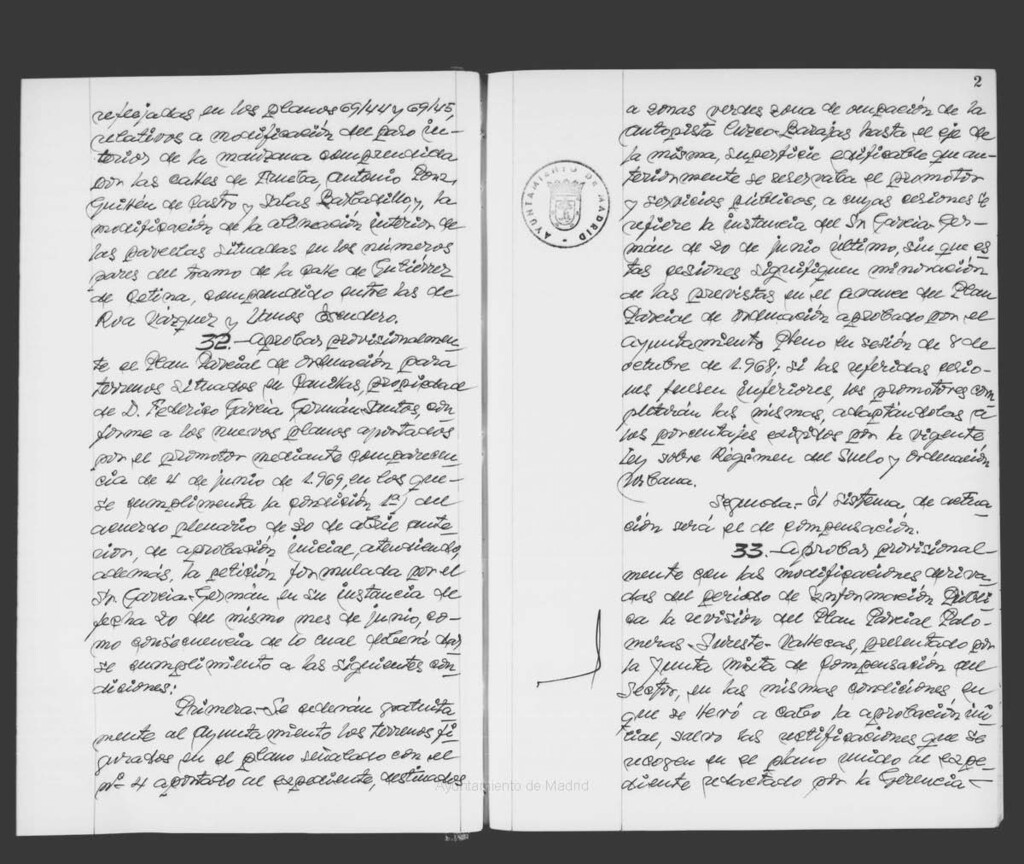 reflejadas en los planos 69/44 y 69/45,
relativos a modificación del paso in-
terior de la manzana comprendida
con las calles de Ezueta, Antonio Ponz,
Guillén de Castro y Salas Barbadillo, y la
modificación de la alineación interior de
las parcelas situadas en los números
pares del tramo de la calle de Gutiérrez
de Cetina, comprendido entre las de
Roa Vázquez y Vamos Escudero.
32.- Aprobar provisionalmen-
te el Plan Parcial de Ordenación para
terrenos situados en Canillas, propiedad
de D. Federico García Germán-Santos, con
forme a los nuevos planos aportados
por el promotor mediante comparecen-
cia de 4 de junio de 1.969, en los que-
se cumplimenta la condición 1ª) del
acuerdo plenario de 20 de abril ante
rior, de aprobación inicial, atendiendo,
además, la petición formulada por el
Sr. García-Germán en su instancia de
fecha 20 del mismo mes de junio, co-
mo consecuencia de lo cual deberá dar
se cumplimiento a las siguientes con
diciones:
Primera.- Se cederán gratuita
mente al Ayuntamiento los terrenos fi
gurados en el plano señalado con el
nº 4 aportado al expediente, destinados
2
a zonas verdes zona de ocupación de la
autopista Cuzco-Barajas hasta el eje de
la misma, superficie edificable que an-
teriormente se reservaba el promotor
y servicios públicos, a cuyas cesiones se
refiere la instancia del Sr. García-Ger-
mán de 20 de junio último, sin que es
tas cesiones signifiquen minoración
de las previstas en el avance del Plan
Parcial de Ordenación aprobado por el
Ayuntamiento Pleno en sesión de 8 de
octubre de 1.968; si las referidas cesio-
nes fuesen inferiores, los promotores com
pletarán las mismas, adaptándolas a
los porcentajes exigidos por la vigente
Ley sobre Régimen del Suelo y Ordenación
Urbana.
Segunda.- El sistema de actua
ción será el de compensación.
33.- Aprobar provisional-
mente con las modificaciones deriva
das del período de Información Públi
ca la revisión del Plan Parcial Palo-
meras-Sureste-Vallecas, presentado por
la Junta Mixta de Compensación del
Sector, en las mismas condiciones en
que se llevó a cabo la aprobación ini
cial, salvo las rectificaciones que se
recogen en el plano unido al expe-
diente redactado por la Gerencia-
AYUNTAMIENTO DE MADRID
Ayuntamiento de Madrid